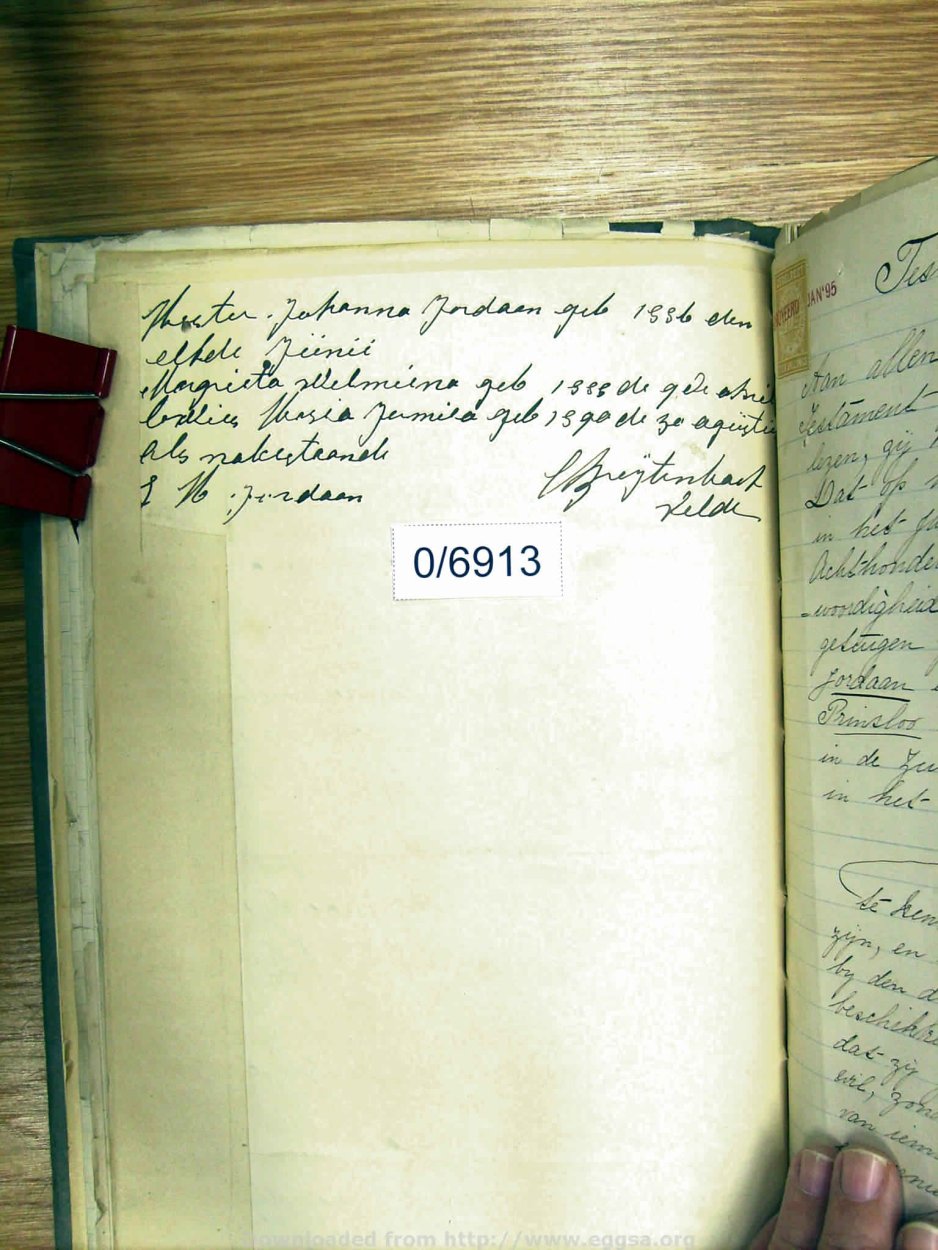 Hester Johanna Jordaan geb 1886 den
elfde Junii
Magrieta Wilmiina geb 1888 de 9de
Maria geb 1890 de 30
als nabestaande
Jordaan
C Breytenbach
Veldc
0/6913
JAN '95
Tes
Aan allen
Testament
lezen, zij
Dat op
in het ja
Achthonder
-woordigheid
getuigen
Jordaan
Prinsloo
in de Zui
in het
te ken
zyn, en
by den d
beschikki
dat zij
wil, zon
van iem
Downloaded from http://www.eggsa.org